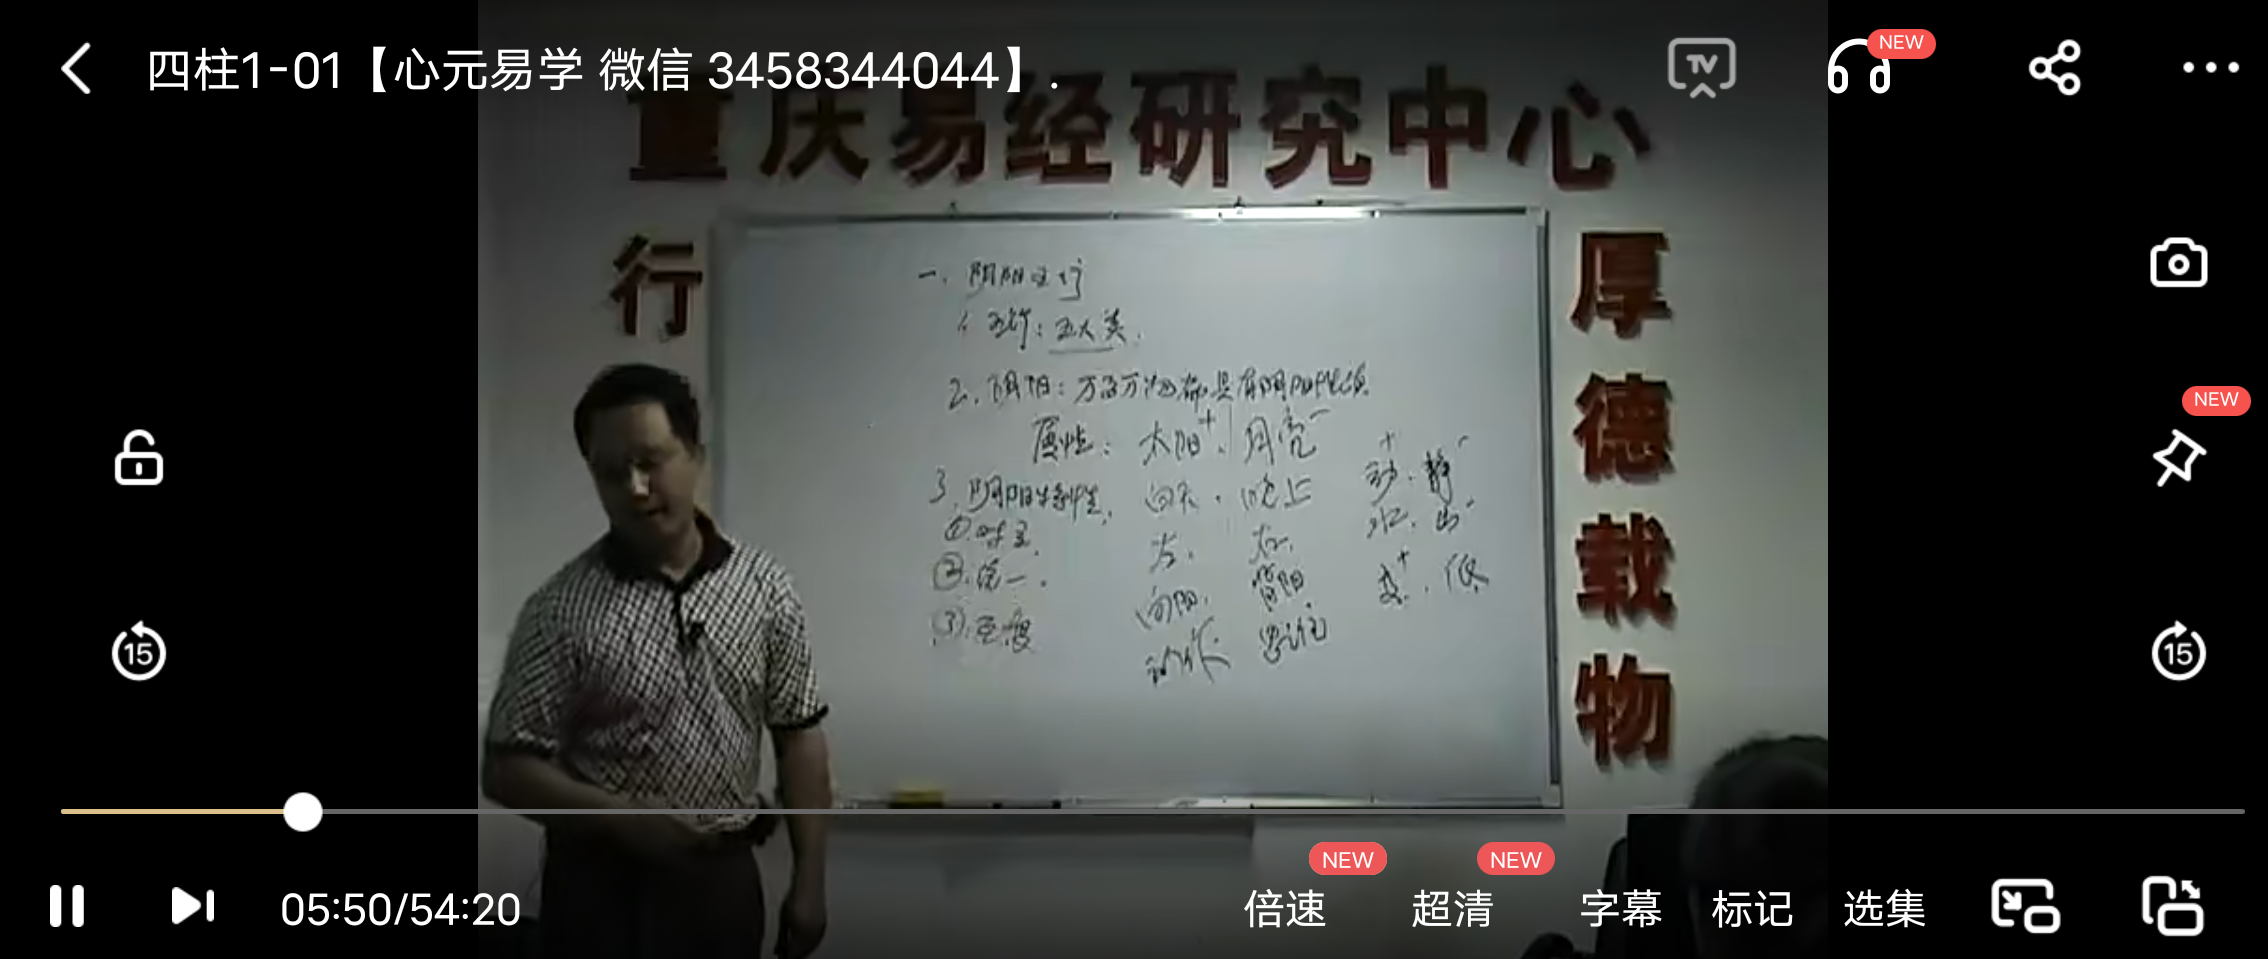 四柱1-01【心元易学 微信 3458344044】.
TV
NEW
重庆易经研究中心
行
厚德载物
一、阴阳五行
1. 五行：五大类.
2. 阴阳：万事万物都具有阴阳性质
属性：太阳+、月亮-
3. 阴阳特性. 白天. 晚上
动+. 静-
水. 山-
①对立.
左. 右.
②统一.
向阳. 背阳.
+. 低
③互变
动作. 思维
NEW
15
15
05:50/54:20
NEW
NEW
倍速 超清 字幕 标记 选集